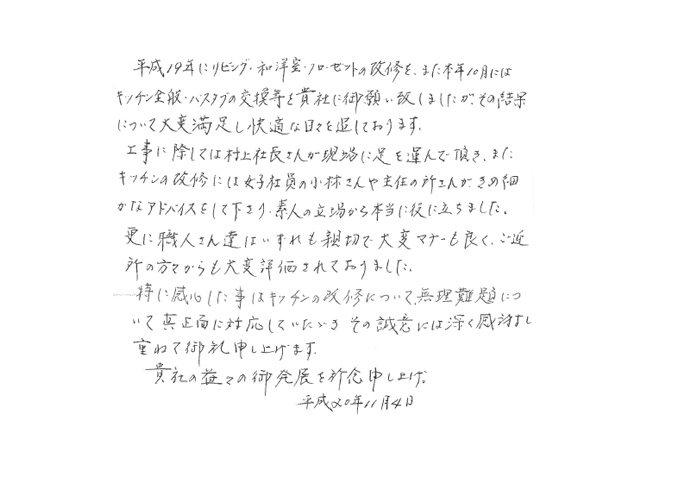 平成19年にリビング・和洋室・クローゼットの改修を、また本年10月には
キッチン全般・バスタブの交換等を貴社に御願い致しましたが、その結果
について大変満足し快適な日々を過しております。
工事に際しては村上社長さんが現場に足を運んで頂き、また
キッチンの改修には女子社員の小林さんや主任の所さんがきめ細
かなアドバイスをして下さり、素人の立場から本当に役に立ちました。
更に職人さん達はいずれも親切で大変マナーも良く、ご近
所の方々からも大変評価されておりました。
特に感心した事はキッチンの改修について、無理難題につ
いて真正面に対応していただき その誠意には深く感謝し
重ねて御礼申し上げます。
貴社の益々の御発展を祈念申し上げ。
平成20年11月4日